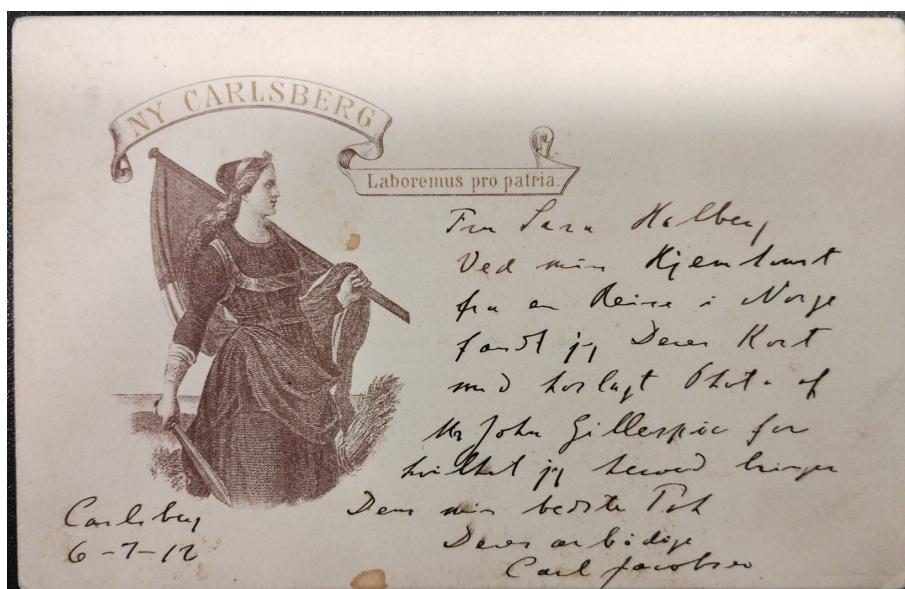 NY CARLSBERG
Laboremus pro patria.
Fru Sara Halberg
Ved min Hjemkomst
fra en Reise i Norge
fandt jeg Deres Kort
med hoslagt Photo af
Mr John Gillespie for
hvilket jeg herved bringer
Dem min bedste Tak
Deres ærbødige
Carl Jacobsen
Carlsberg
6-7-12